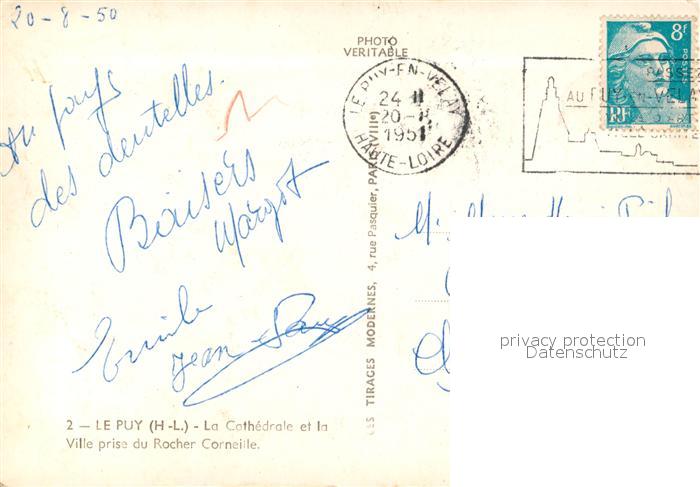 20-8-50
Au pays
des dentelles.
Baisers
Margot
Emile
Jean
2 — LE PUY (H.-L.) - La Cathédrale et la
Ville prise du Rocher Corneille.
PHOTO
VERITABLE
LES TIRAGES MODERNES, 4, rue Pasquier, PARIS (VIIIe)
LE PUY-EN-VELAY
24 H
20-8
195
HAUTE-LOIRE
8F
RF
PASSE
AU PUY-EN-VELA
privacy protection
Datenschutz